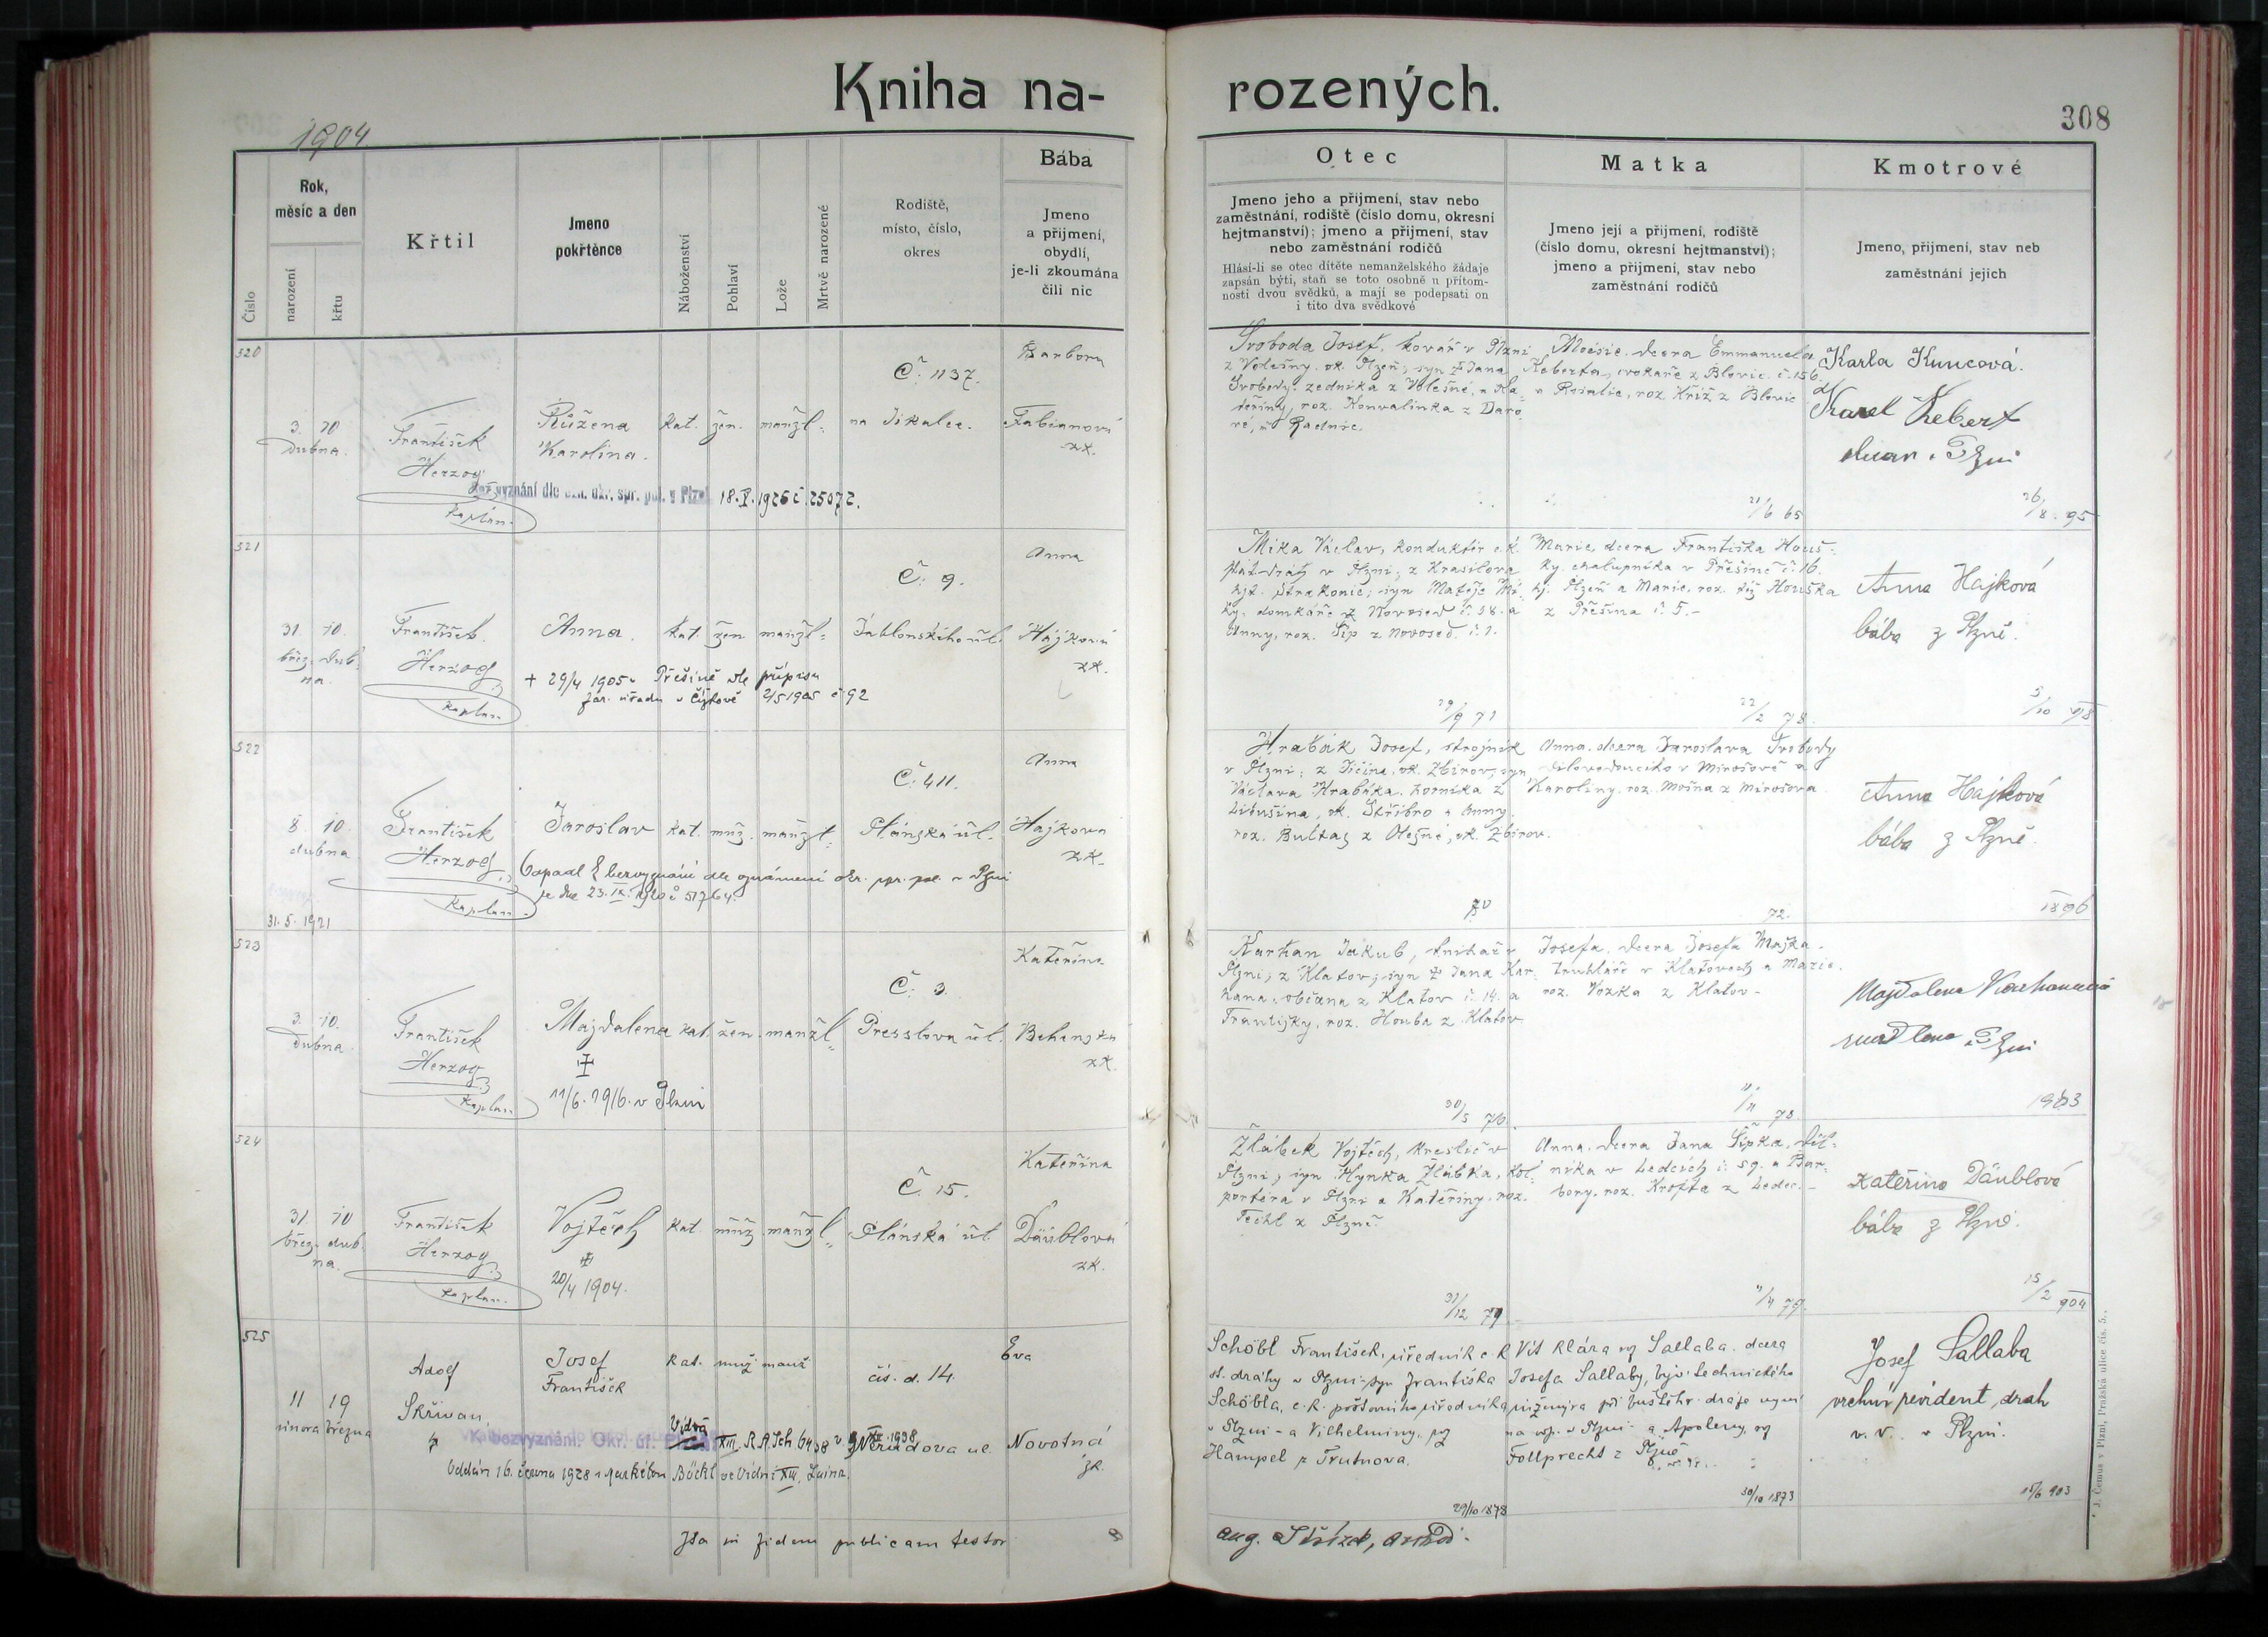 Kniha na-
rozených.
308
1904
Číslo
Rok,
měsíc a den
narození
křtu
Křtil
Jmeno
pokřtěnce
Náboženství
Pohlaví
Lože
Mrtvě narozené
Rodiště,
místo, číslo,
okres
Bába
Jmeno
a přijmení,
obydlí,
je-li zkoumána
čili nic
Otec
Jmeno jeho a přijmení, stav nebo
zaměstnání, rodiště (číslo domu, okresní
hejtmanství); jmeno a přijmení, stav
nebo zaměstnání rodičů
Hlásí-li se otec dítěte nemanželského žádaje
zapsán býti, staň se toto osobně u přítom-
nosti dvou svědků, a mají se podepsati on
i tito dva svědkové
Matka
Jmeno její a přijmení, rodiště
(číslo domu, okresní hejtmanství);
jmeno a přijmení, stav nebo
zaměstnání rodičů
Kmotrové
Jmeno, přijmení, stav neb
zaměstnání jejich
520
3. 10
dubna.
František
Herzog
kaplan.
Růžena
Karolina.
kat. žen. manžl.
Č. 1137.
na
Barbora
Fabianová
zk.
vyznání dle ozn. okr. spr. pol. v Plzni 18. V. 1926 č. 25072.
Svoboda Josef, kovář v Plzni
z Volešny, ok. Plzeň, syn Jana
Svobody, zedníka z Volešné, a Ka-
teřiny, roz. Konvalinka z Daro
vé, u Radnic.
dcera Emmanuela
Keberta, z Blovic č. 156.
a Rosalie, roz. Kříž z Blovic
21/6 65
Karla Kuncová.
Karel Kebert
26/8 95
521
31. 10.
břez. dub-
na.
František
Herzog
kaplan.
Anna.
kat. žen manžl.
Č. 9.
Jablonského ul.
Anna
Hájková
zk.
+ 29/4 1905 v Přešíně dle přípisu
far. úřadu v Čížkově 2/5 1905 č 92
Míka Václav, konduktér c.k.
stát. dráhy v Plzni, z Krasilova
hjt. Strakonic, syn Matěje Mí-
ky, domkáře z Novosed č. 38. a
Anny, roz. Šíp z Novosed. č. 1.
29/9 71
Marie, dcera Františka Houš-
ky, chalupníka v Přešíně č. 16.
hj. Plzeň a Marie, roz. též Houška
z Přešína č. 5.-
22/2 78.
Anna Hajková
bába z Plzně.
5/10 98
522
8 10.
dubna
31. 5. 1921
František
Herzog
kaplan.
Jaroslav
kat. muž. manžl.
Č. 411.
Plánská ul.
Anna
Hajkova
zk.
Odpadl k bezvyznání dle oznámení okr. spr. pol. v Plzni
ze dne 23. IX. 1920 č 51764.
Hrabák Josef, strojník
v Plzni, z Jičína, ok. Zbirov, syn
Václava Hrabáka, horníka z
Litušína, ok. Stříbro a Anny
roz. Bultas z Olešné, ok. Zbirov.
Anna, dcera Jaroslava Svobody
dílovedoucího v Mirošově a
Karoliny, roz. Mošna z Mirošova
72.
Anna Hájková
bába z Plzně.
1896
523
3. 10.
dubna.
František
Herzog
kaplan.
Majdalena
kat. žen. manžl.
Č. 3.
Presslova ul.
Kateřina
Behenská
zk.
11/6. 1916. v Plzni
Karhan Jakub, truhlář v
Plzni, z Klatov, syn Jana Kar-
hana, občana z Klatov č. 14. a
Františky, roz. Houba z Klatov
30/5 76.
Josefa, dcera Josefa Majka
truhláře v Klatovech a Marie.
roz. Vozka z Klatov-
11/11 78
Majdalena
1903
524
31. 10
břez. dub.
na.
František
Herzog
kaplan.
Vojtěch
20/4 1904.
kat. muž manžl.
Č. 15.
Plánská ul.
Kateřina
Däublová
zk.
Žlábek Vojtěch, kreslič v
Plzni, syn Hynka Žlábka, kol-
portéra v Plzni a Kateřiny, roz.
Teichl z Plzně.
31/12 79
Anna, dcera Jana Šípka, děl-
níka v Ledcích č. 59. a Bar-
bory, roz. Krofta z Ledec.-
11/4 79.
Kateřina Däublová
bába z Plzně.
15/2 904
525
11 19
února března
Adolf
Skřivan
Josef
František
kat. muž manž
čís. d. 14.
Nerudova ul.
Eva
Novotná
zk.
K bezvyznání. Okr. úř.
Vídeň XIII. R.A.Sch 64 98 v. 1938
Oddán 16. června 1928 s Markétou Böckl ve Vídni XIII. Lainz.
Schöbl František, úředník c k
st. dráhy v Plzni-syn Františka
Schöbla, c.k. poštovního úředníka
v Plzni - a Vilhelminy, roz
Hampel z Trutnova.
29/10 1878
Vít. Klára roz Sallaba. dcera
Josefa Sallaby, býv. technického
inženýra při buštěhr. dráze nyní
na odp. v Plzni - a Apoleny, roz
Follprecht z Plzně
30/10 1873
Josef Sallaba
vrchní revident, drah
v. v. v Plzni.
15/6 903
Ita in fidem publicam testor
Aug. Střízek,
J. Černus v Plzni, Pražská ulice čís. 5.